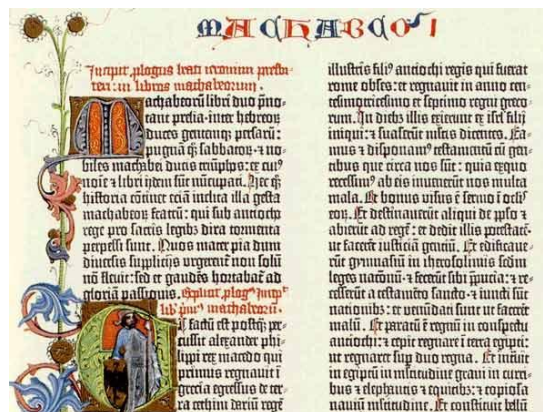 MACHABEO I
Incipit plogus beati ieronimi presbi-
teri in libros machabeorum.
Machabeorū libri duo pno-
tant prelia: inter hebreoꝝ
duces gentemqꝫ persarū:
pugnā qꝫ sabbatoꝝ: ⁊ no-
biles machabei ducis triumphos: ex cui⁹
noīe ⁊ libri ijdem sūt nūcupati. Hec qꝫ
historia cōtinet eciā inclita illa gesta
machabeoꝝ fratrū: qui sub antiocho
rege pro sacris legibꝫ dira tormenta
perpessi sunt. Quos mater pia dum
diuersis supplicijs vrgerent̄ non solū
nō fleuit: sed et gaudēs hortabat̄ ad
gloriā passionis. Explicit plog⁹ Incipt
lib̄ prim⁹ machabeorū.
Et factū est postqꝫ per-
cussit alexander phi-
lippi rex macedo qui
primus regnauit ī
grecia egressus de ter-
ra cethim dariū regē
illustris fili⁹ antiochi regis qui fuerat
rome obses: et regnauit in anno cen-
tesimotricesimo et septimo regni greco-
rum. In diebꝫ illis exierunt ex isrl̄ filij
iniqui: ⁊ suaserūt multis dicentes. Ea-
mus ⁊ disponam⁹ testamentū cū gen-
tibus que circa nos sūt: quia ex quo
recessim⁹ ab eis inuenerūt nos multa
mala. Et bonus visus ē sermo ī oclis
eoꝝ. Et destinauerūt aliqui de pplo ⁊
abierūt ad regē: et dedit illis potestatē
ut facerēt iusticiā genciū. Et edificaue-
rūt gymnasiū in iherosolimis scdm̄
leges nacionū: ⁊ fecerūt sibi prepucia: ⁊ re-
cesserūt a testamēto sancto: ⁊ iuncti sūt
nationibꝫ: et venūdati sunt ut facerēt
malū. Et paratū ē regnū in conspectu
antiochi: ⁊ cepit regnare ī terra egipti:
ut regnaret sup duo regna. Et intrauit
in egiptū in multitudine graui in curri-
bus ⁊ elephantis ⁊ equitibꝫ: ⁊ copiosa
nauiū multitudine. Et constituit bellū